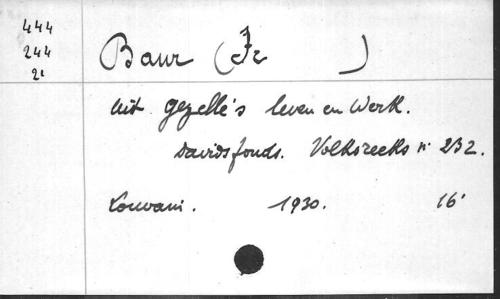 444
244
21
Baur (Fr )
uit gezelle's leven en werk.
Davidsfonds. Volksreeks n° 232.
Louvain. 1930. 16°